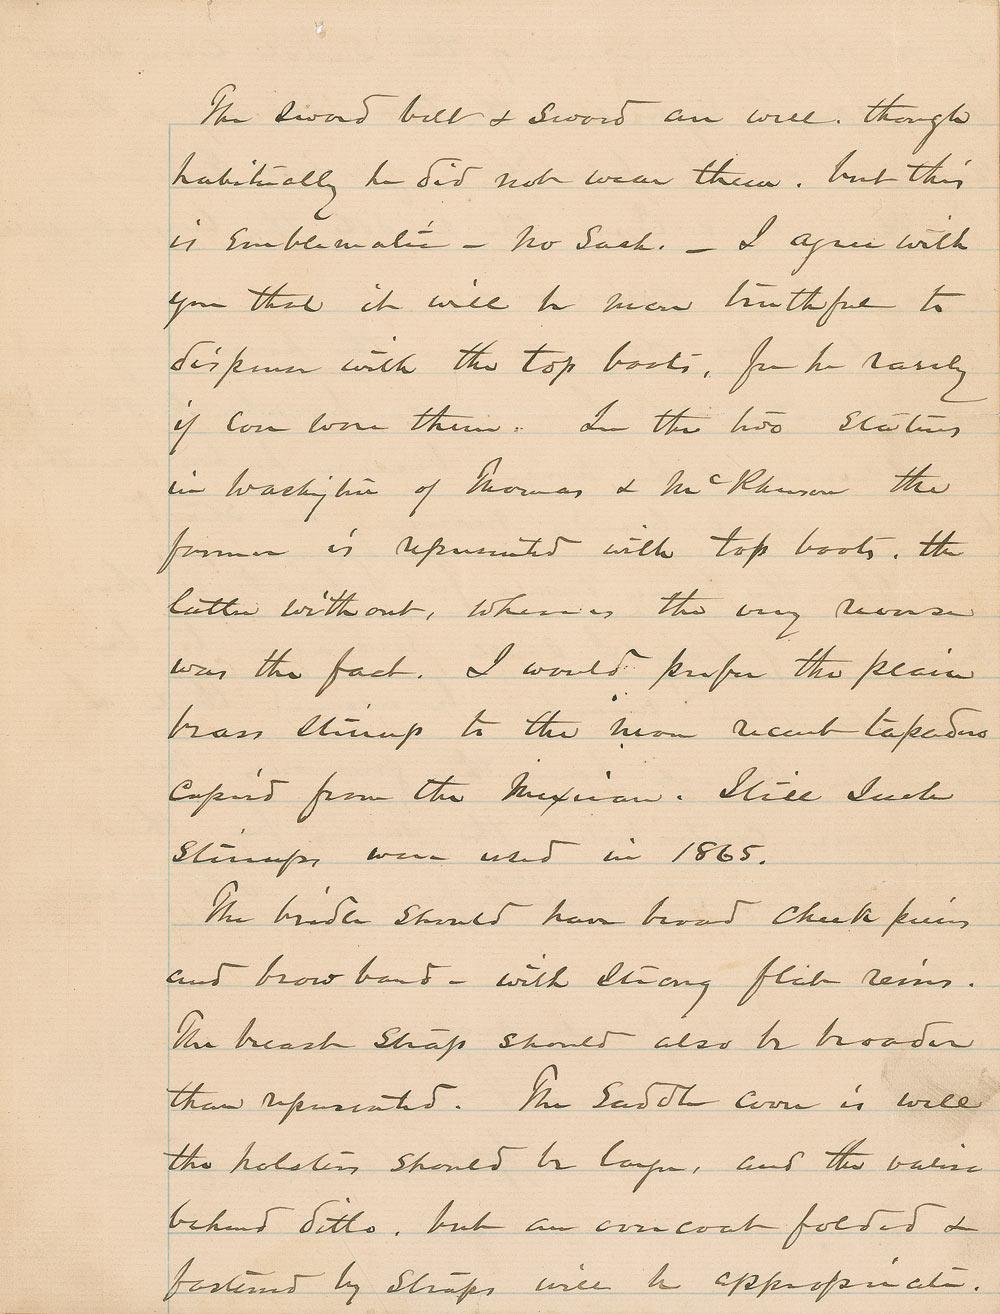 The sword belt & Sword are well. though
habitually he did not wear them. but this
is Emblematic – No Sash. – I agree with
you that it will be more truthful to
dispense with the top boots, for he rarely
if ever wore them. In the two Statues
in Washington of Thomas & McPherson the
former is represented with top boots. the
latter without, whereas the very reverse
was the fact. I would prefer the plain
brass Stirrup to the more recent tapadero
copied from the Mexican. Still Such
Stirrups were used in 1865.
The bridle should have broad Cheek pieces
and brow band – with Strong flat reins.
The breast Strap should also be broader
than represented. The Saddle cover is well
the holsters should be larger, and the valise
behind ditto. but an overcoat folded &
fastened by Straps will be appropriate.